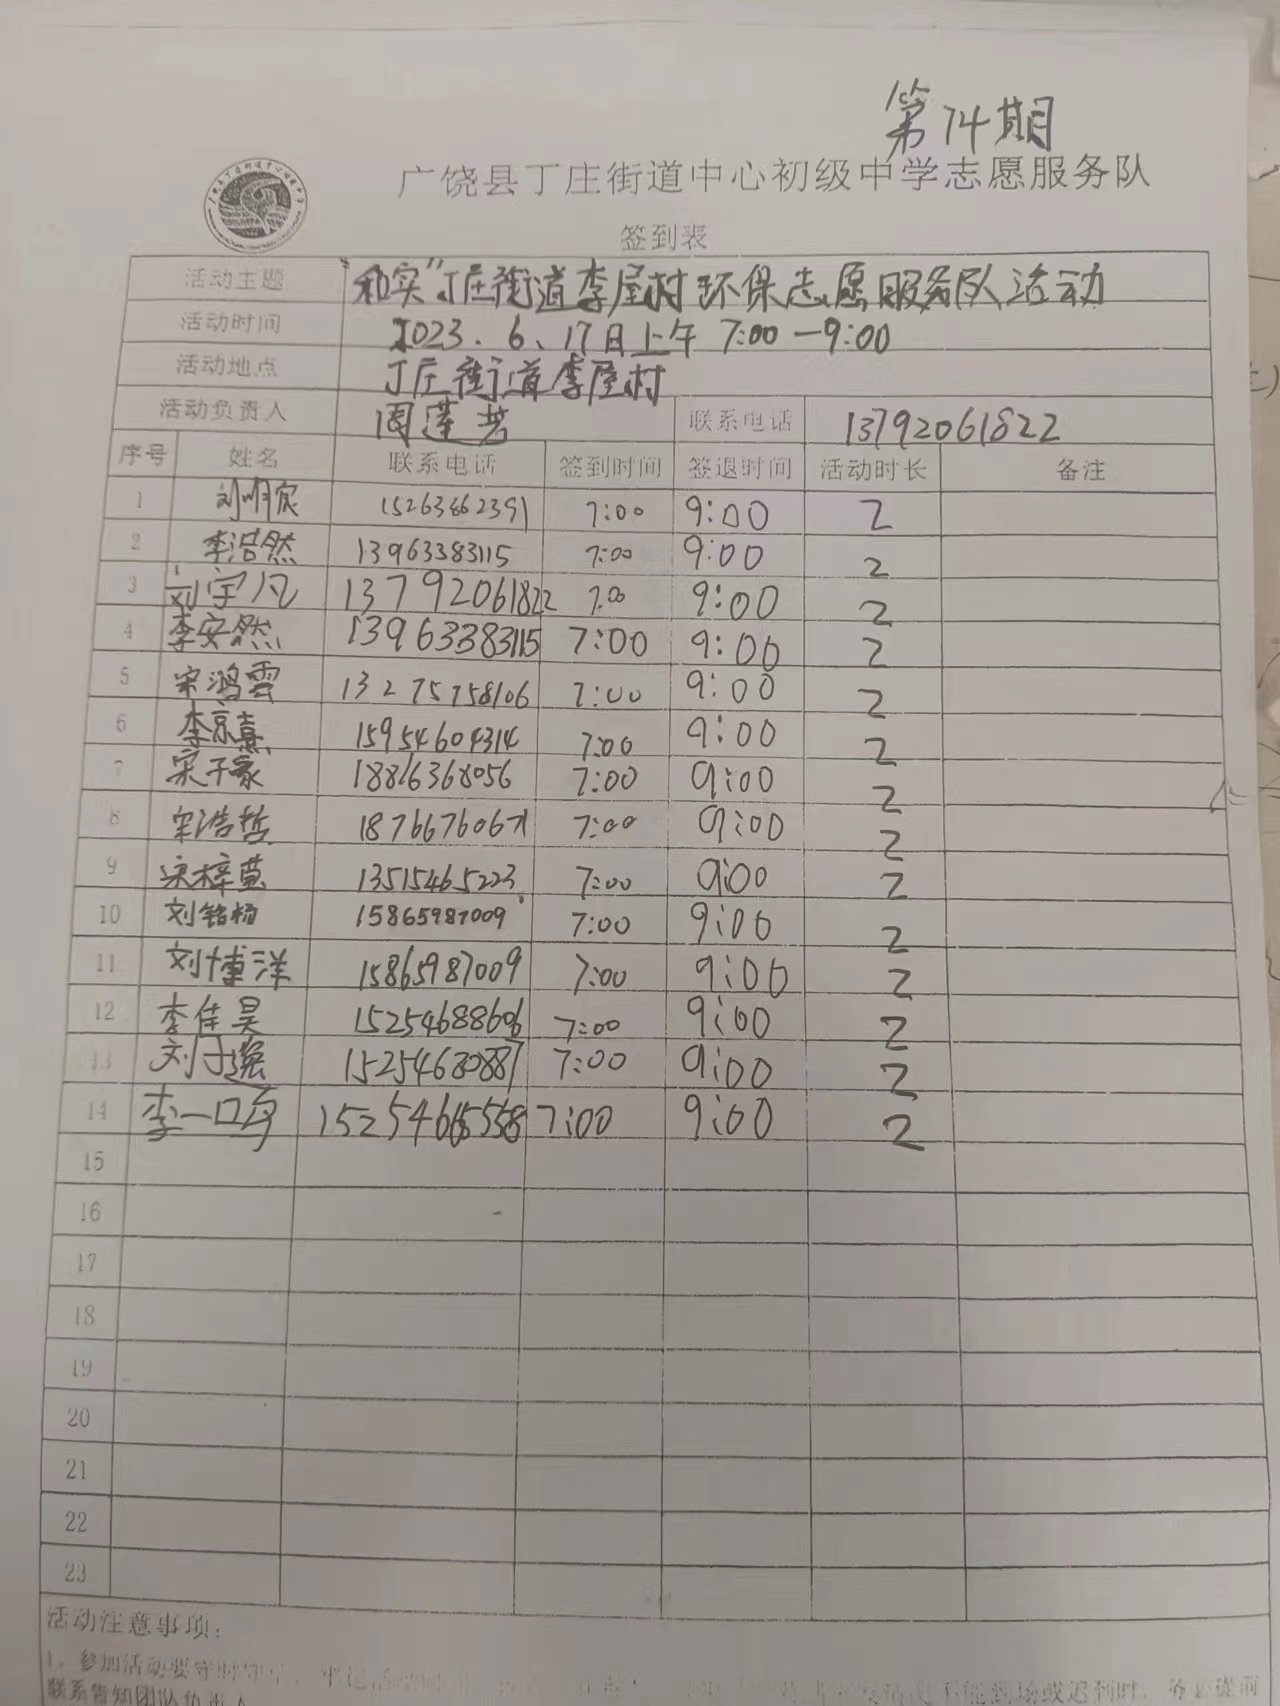 第74期
广饶县丁庄街道中心初级中学志愿服务队
签到表
活动主题 “和实”丁庄街道李屋村环保志愿服务队活动
活动时间 2023.6、17日上午 7:00-9:00
活动地点 丁庄街道李屋村
活动负责人 周莲芳 联系电话 13792061822
序号 姓名 联系电话 签到时间 签退时间 活动时长 备注
1 刘明宸 15263862391 7:00 9:00 2
2 李浩然 13963383115 7:00 9:00 2
3 刘宇凡 13792061822 7:00 9:00 2
4 李安然 13963383115 7:00 9:00 2
5 宋鸿雲 13275758106 7:00 9:00 2
6 李京熹 15954604314 7:00 9:00 2
7 宋子豪 18816368056 7:00 9:00 2
8 宋浩哲 18766760671 7:00 9:00 2
9 宋梓萱 13515465223 7:00 9:00 2
10 刘铭杨 15865987009 7:00 9:00 2
11 刘博洋 15865987009 7:00 9:00 2
12 李佳昊 15254688606 7:00 9:00 2
13 刘子 15254680887 7:00 9:00 2
14 李一鸣 7:00 9:00 2
15
16
17
18
19
20
21
22
23
活动注意事项:
1、参加活动要守时
联系告知团队负责人